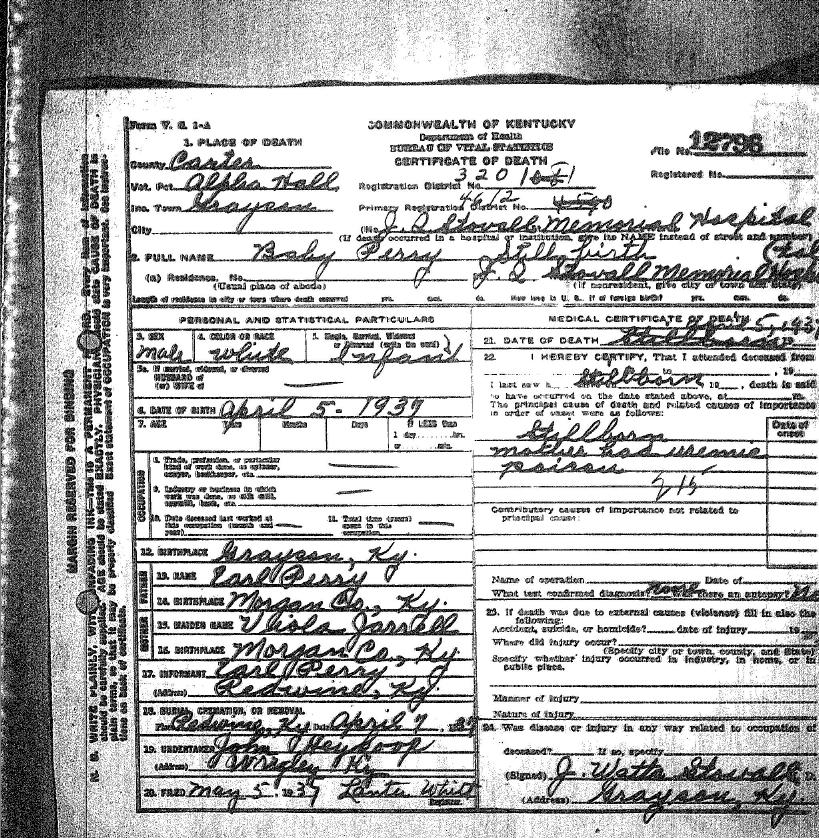 Form V. S. 1-A
COMMONWEALTH OF KENTUCKY
Department of Health
BUREAU OF VITAL STATISTICS
CERTIFICATE OF DEATH
File No. 12796
Registered No.
1. PLACE OF DEATH
County Carter
Vot. Pct. Alpha Hall
Inc. Town Grayson
City
Registration District No. 320
Primary Registration District No. 4612
(No. J. Q. Stovall Memorial Hospital
(If death occurred in a hospital or institution, give its NAME instead of street and number)
2. FULL NAME Baby Perry Still birth
(a) Residence. No. J. Q. Stovall Memorial
(Usual place of abode) (If nonresident, give city or town and State)
Length of residence in city or town where death occurred yrs. mos. ds. How long in U. S., if of foreign birth? yrs. mos. ds.
PERSONAL AND STATISTICAL PARTICULARS
3. SEX Male
4. COLOR OR RACE White
5. Single, Married, Widowed or Divorced (write the word) Infant
5a. If married, widowed, or divorced
HUSBAND of
(or) WIFE of
6. DATE OF BIRTH April 5 - 1937
7. AGE Years Months Days If LESS than
1 day, hrs.
or min.
OCCUPATION
8. Trade, profession, or particular
kind of work done, as spinner,
sawyer, bookkeeper, etc.
9. Industry or business in which
work was done, as silk mill,
sawmill, bank, etc.
10. Date deceased last worked at
this occupation (month and
year)
11. Total time (years)
spent in this
occupation
12. BIRTHPLACE Grayson, Ky.
FATHER
13. NAME Earl Perry
14. BIRTHPLACE Morgan Co., Ky.
MOTHER
15. MAIDEN NAME Viola Jarrell
16. BIRTHPLACE Morgan Co., Ky
17. INFORMANT Earl Perry
(Address) Redwine, Ky.
18. BURIAL, CREMATION, OR REMOVAL
Place Redwine, Ky Date April 7, 1937
19. UNDERTAKER John
(Address) Wrigley Ky
20. FILED May 5, 1937
Registrar.
MEDICAL CERTIFICATE OF DEATH
21. DATE OF DEATH April 5, 1937
Stillborn
22. I HEREBY CERTIFY, That I attended deceased from
to , 19
I last saw h Stillborn 19 , death is said
to have occurred on the date stated above, at m.
The principal cause of death and related causes of importance
in order of onset were as follows:
Date of
onset
Stillborn
mother had uremic
poison
Contributory causes of importance not related to
principal cause:
Name of operation Date of
What test confirmed diagnosis? none Was there an autopsy? No
23. If death was due to external causes (violence) fill in also the
following:
Accident, suicide, or homicide? date of injury 19
Where did injury occur?
(Specify city or town, county, and State)
Specify whether injury occurred in industry, in home, or in
public place.
Manner of injury
Nature of injury
24. Was disease or injury in any way related to occupation of
deceased? If so, specify
(Signed) J. Watts Stovall D.
(Address) Grayson, Ky
MARGIN RESERVED FOR BINDING